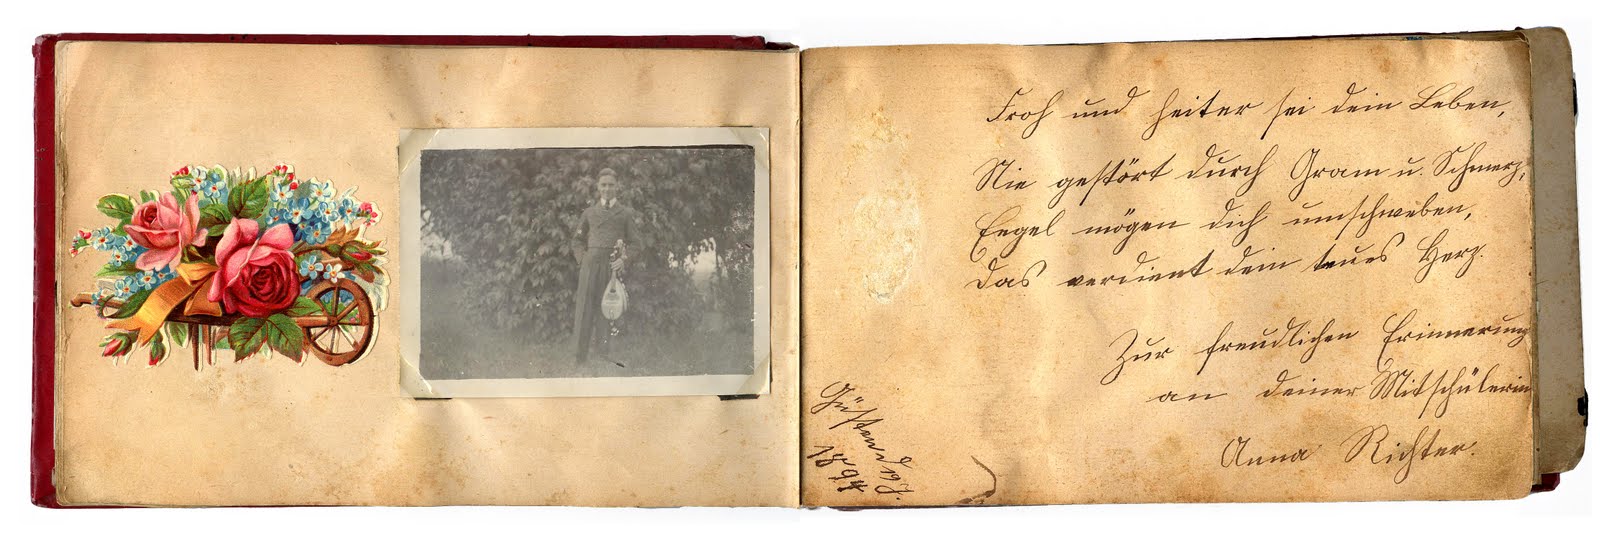 Froh und heiter sei dein Leben,
Nie gestört durch Gram u. Schmerz,
Engel mögen dich umschweben,
Das verdient dein teures Herz.
Zur freundlichen Erinnerung
an deiner Mitschülerin
Anna Richter.
Güsten d 19.7.
1894